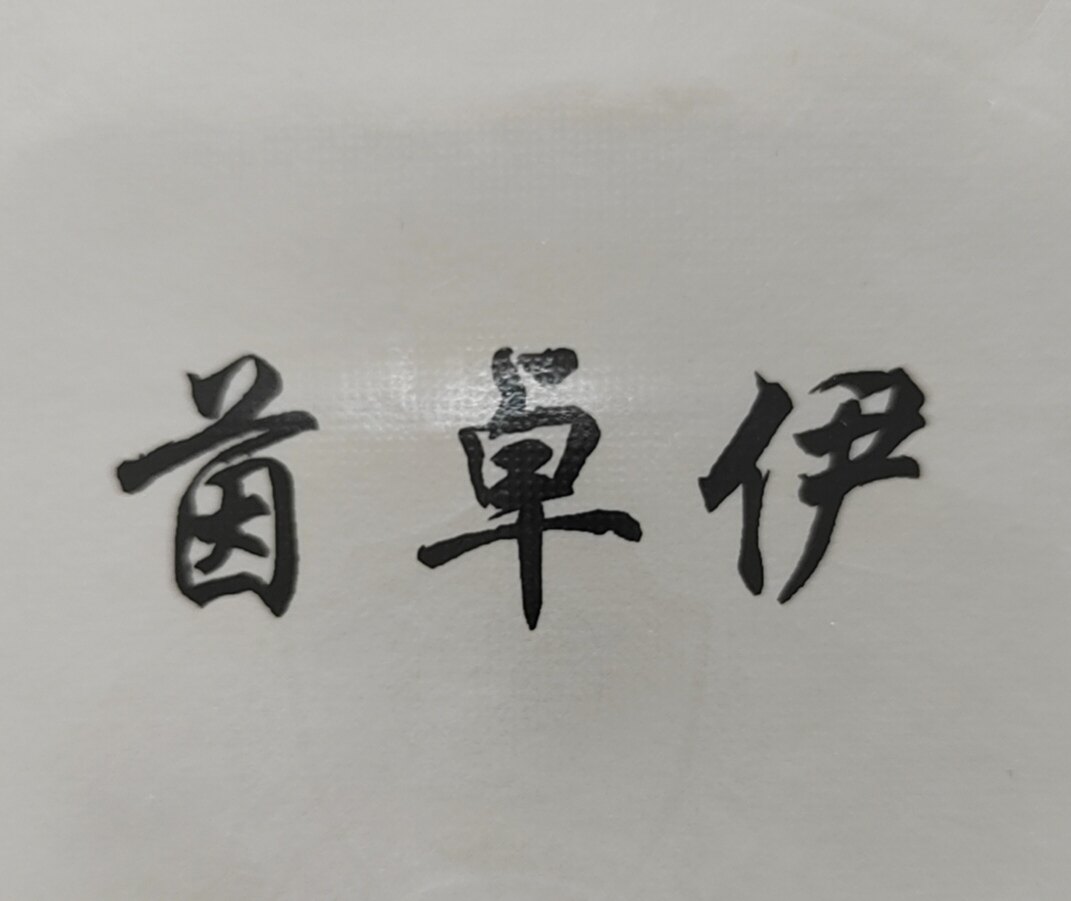 茵卓伊